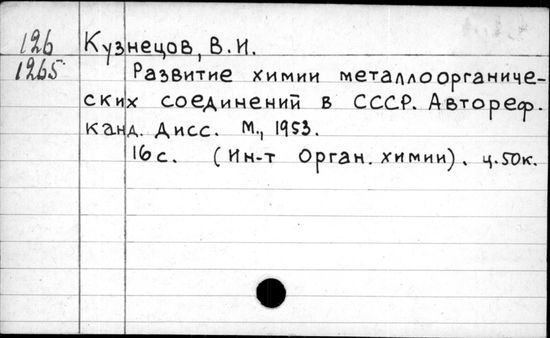 126
1265
Кузнецов, В.И.
Развитие химии металлоорганиче-
ских соединений в СССР. Автореф.
канд. дисс. М., 1953.
16 с. (Ин-т Орган. химии). ц.50к.